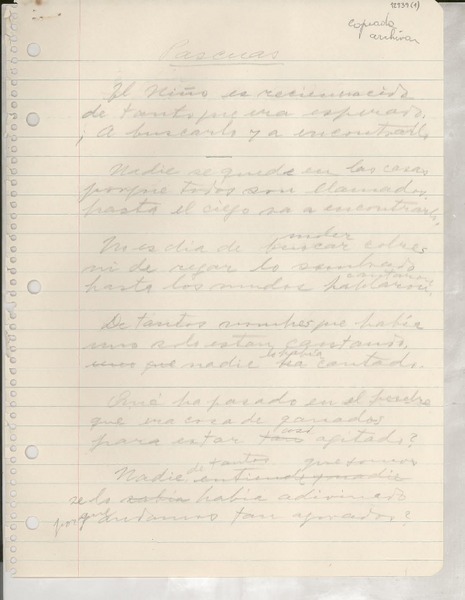 copiado
archivar
Pascuas
El Niño es reciennacido
de tanto que era esperado.
¡A buscarlo y a encontrarlo
Nadie se quede en las casas
porque todos son llamados.
hasta el ciego va a encontrarlo.
Ni es día de buscar
ni de regar lo sembrado
hasta los mudos hablaron.
De tantos nombres que había
uno solo están cantando,
que nadie había cantado.
Qué ha pasado en el
que era cosa de ganados
para estar agitado?
Nadie de tantos que somos
se lo había adivinado
por qué andamos tan apurados?